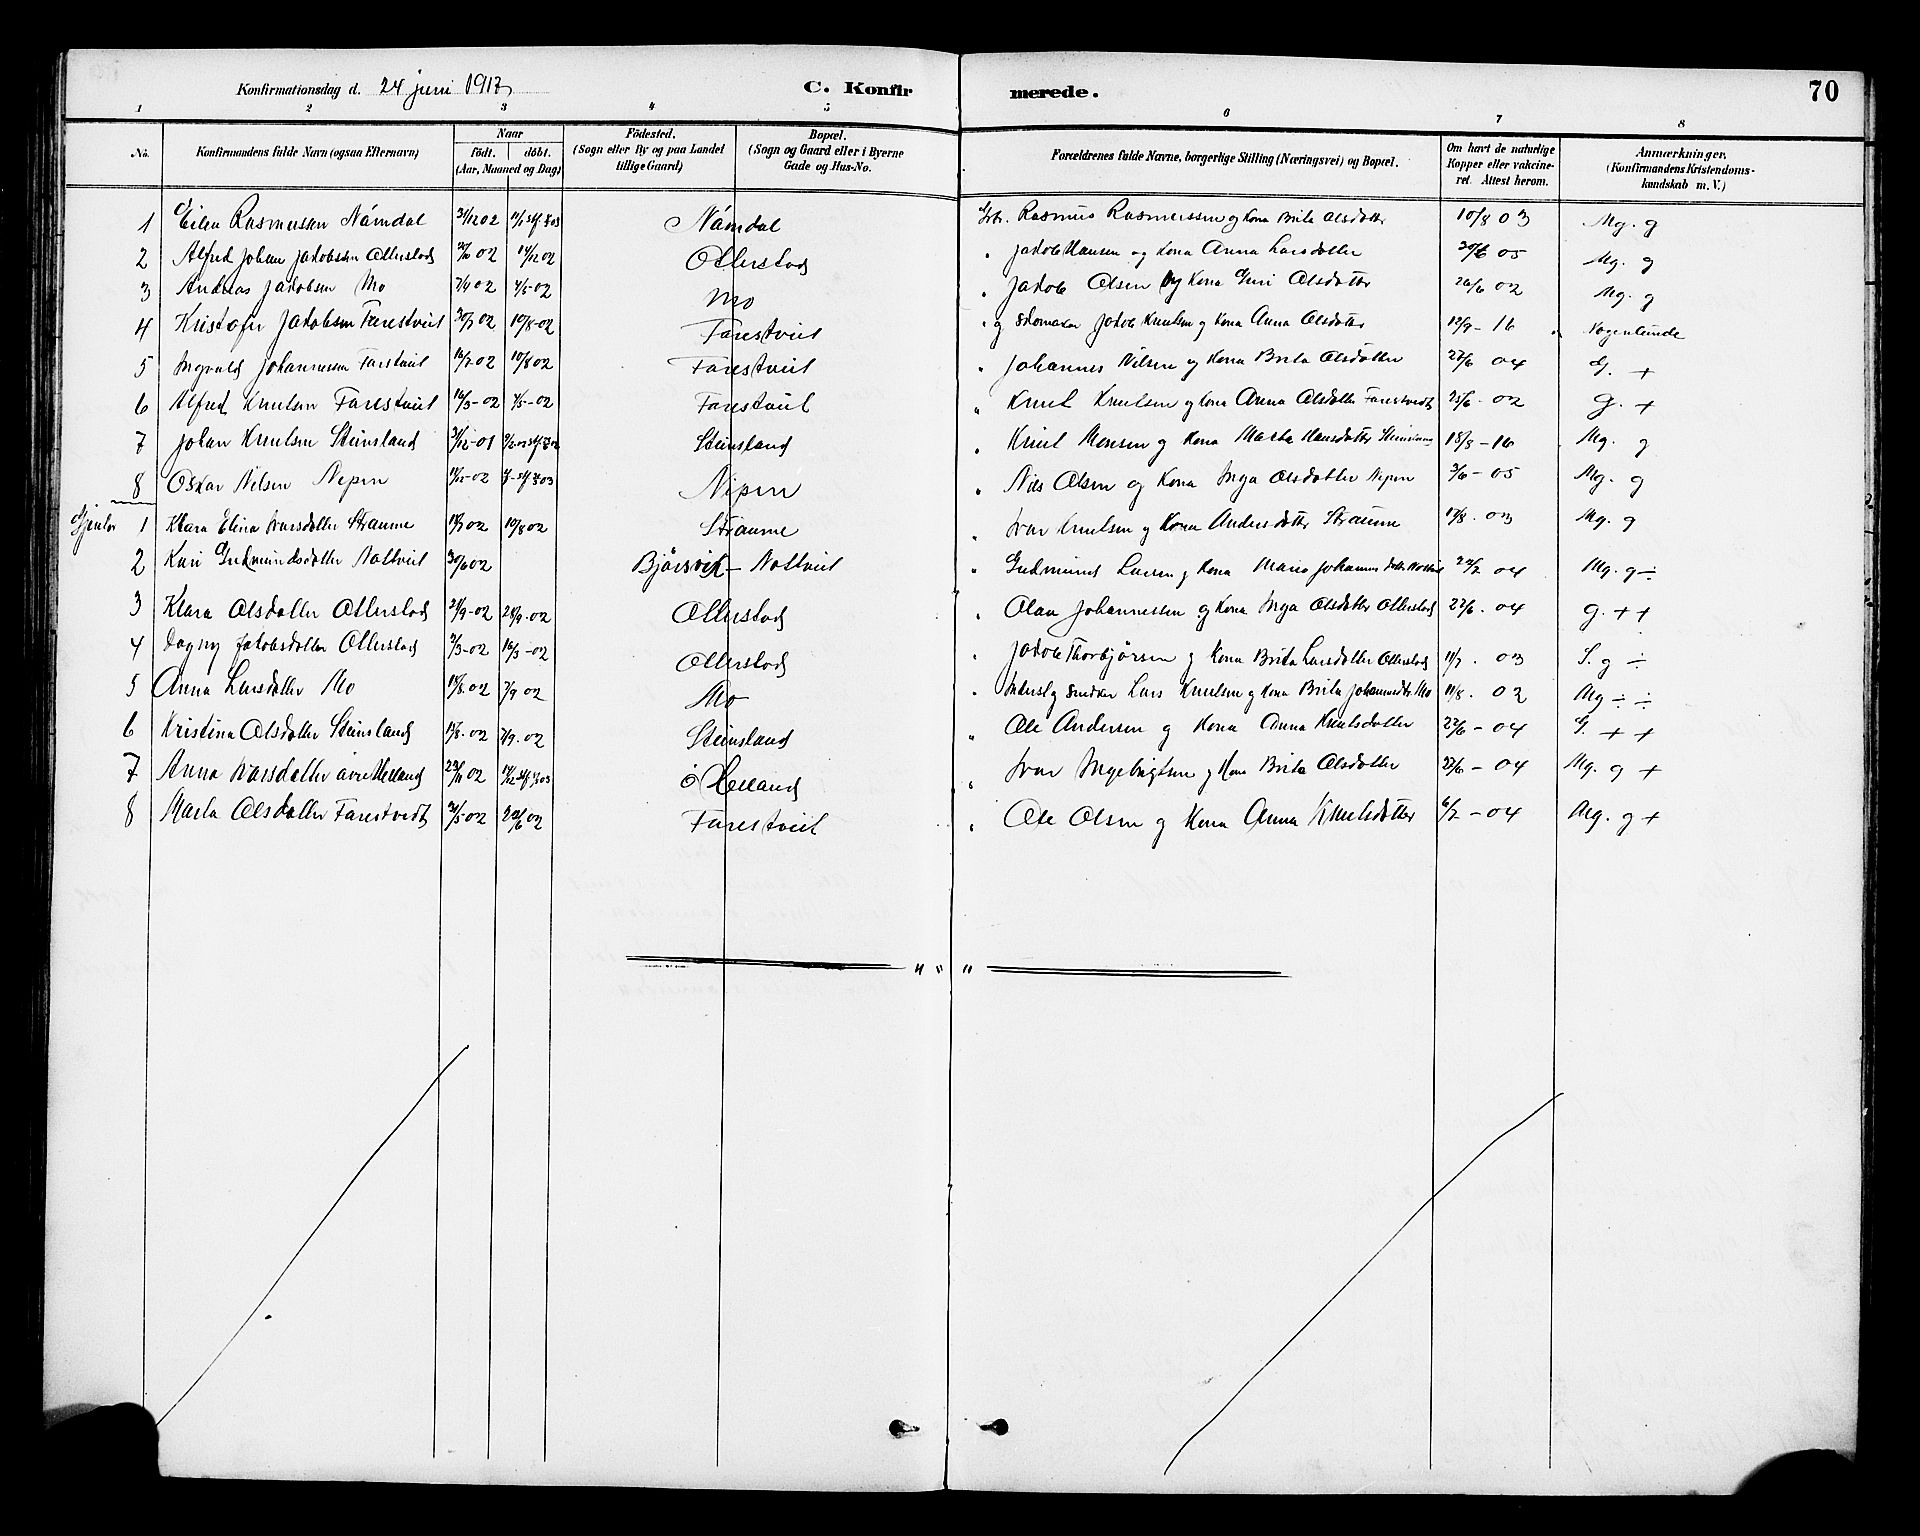 Konfirmationsdag d. 24 juni 1917 C. Konfirmerede. 70
1 2 3 4 5 6 7 8
No. Konfirmandens fulde Navn (ogsaa Efternavn) Naar födt. döbt. (Aar, Maaned og Dag) Födested. (Sogn eller By og paa Landet tillige Gaard) Bopæl. (Sogn og Gaard eller i Byerne Gade og Hus-No. Forældrenes fulde Navne, borgerlige Stilling (Næringsvei) og Bopæl. Om havt de naturlige Kopper eller vakcineret. Attest herom. Anmærkninger, (Konfirmandens Kristendomskundskab m. V.)
1 Rasmussen Námdal 31/12 02 Námdal Gbr. Rasmus Rasmussen og Kona Brita Olsdotter 10/8 03 Mg. g
2 Alfred Johan Jakobsen Otterstad 02 14/12 02 Otterstad " Jakob Hansen og Kona Anna Larsdotter 20/6 05 Mg. g
3 Andreas Jakobsen Mo 7/4 02 4/5-02 Mo " Jakob Olsen og Kona Guri Olsdotter 26/6 02 Mg. g
4 Kristofer Jakobsen Farestveit 30/7 02 10/8-02 Farestveit " g Skomaker Jakob Knutsen og Kona Anna Olsdotter 12/9-16 Nogenlunde
5 Ingvald Johannessen Farestveit 16/7 02 10/8 02 Farestveit " Johannes Nilsen og Kona Brita Olsdotter 27/6 04 G. +
6 Alfred Knutsen Farestveit 16/3-02 4/5-02 Farestveit " Knut Knutsen og Kona Anna Olsdotter Farestvedt 25/6-02 g. +
7 Johan Knutsen Steinsland 31/12-01 Steinsland " Knut Monsen og Kona Marta Hansdotter 18/3-16 Mg. g
8 Oskar Nilsen Nipen Nipen " Nils Olsen og Kona Inga Olsdotter Nipen 3/6-05 Mg. g
Gjentor 1 Klara Elina Ivarsdotter Straume 02 10/8 02 Straume " Ivar Knutsen og Kona Andersdotter Straume 03 Mg. g
2 Kari Gudmundsdotter Nottveit 30/6 02 Bjørsvik - Nottveit " Gudmund Larsen g Kona Maria Johannesdotter 04 Mg. g ÷
3 Klara Olsdotter Otterstad 2/9-02 28/9-02 Otterstad " Olav Johannessen og Kona Inga Olsdotter Otterstad 27/6-04 g. + +
4 Dagny Jakobsdotter Otterstad 3/3-02 16/3-02 Otterstad " Jakob Thorbjørsen g Kona Brita Larsdotter Otterstad 11/7. 03 S. g ÷
5 Anna Larsdotter Mo 02 7/9 02 Mo " Lars Knutsen og Kona Brita Johannesdtr Mo 11/8. 02 Mg ÷ ÷
6 Kristina Olsdotter Steinsland 02 7/9-02 Steinsland " Ole Andersen og Kona Anna Knutsdotter 27/6-04 G. + +
7 Anna Ivarsdotter øvre Helland 02 ö Helland " Ivar Ingebrigtsen g Kona Brita Olsdotter 27/6-04 Mg. g +
8 Marta Olsdotter Farestvedt 31/5-02 22/6 02 Farestveit " Ole Olsen g Kona Anna Knutsdotter 6/7-04 Mg. g +